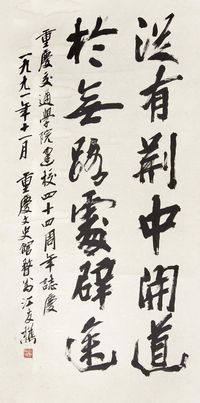 從有荆中開道
於無路處辟途
重慶交通學院建校四十周年誌慶
一九九一年十一月 重慶文史館